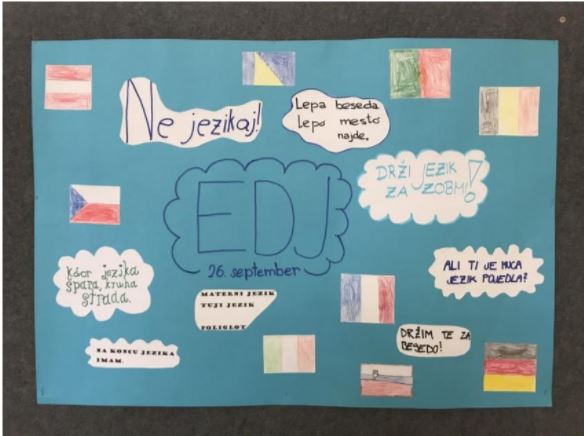 Ne jezikaj!
Lepa beseda
lepo mesto
najde.
DRŽI JEZIK
ZA ZOBMI!
EDJ
26. september
Kdor jezika
špara, kruha
strada.
ALI TI JE MUCA
JEZIK POJEDLA?
MATERNI JEZIK
TUJI JEZIK
POLIGLOT
DRŽIM TE ZA
BESEDO!
NA KONCU JEZIKA
IMAM.